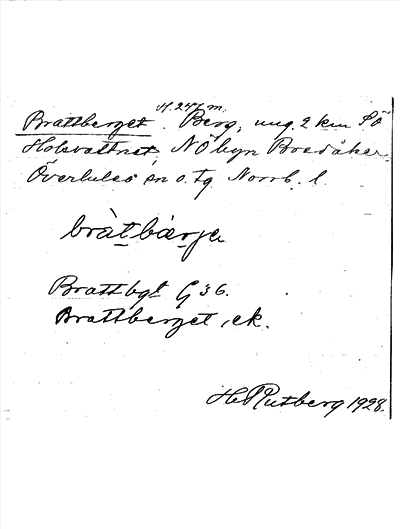 H. 241 m.
Brattberget. Berg, ung. 2 km SÖ
Holsvattnet, NÖ byn Bredåker
Överluleå sn o. tg Norrb. l.
bràtbærje
Brattbgt G 36.
Brattberget, ek.
H. Rutberg 1928.